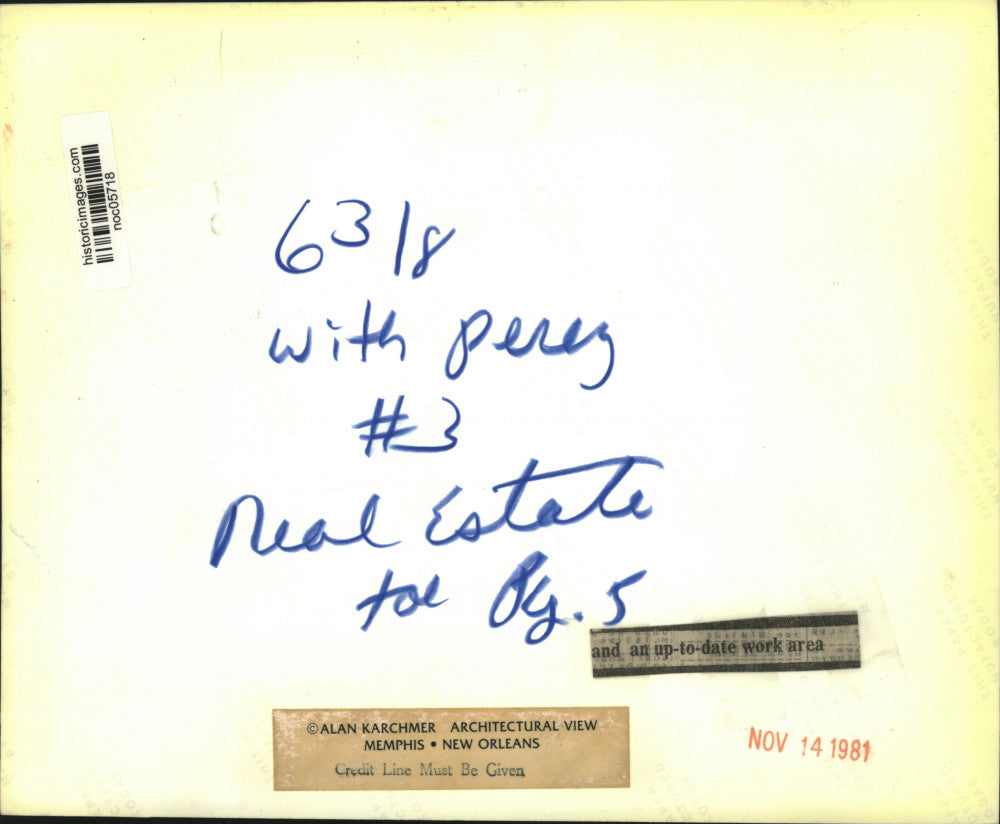 historicimages.com
noc05718
6 3/8
with perez
#3
Real Estate
Pg. 5
and an up-to-date work area
© ALAN KARCHMER ARCHITECTURAL VIEW
MEMPHIS • NEW ORLEANS
Credit Line Must Be Given
NOV 14 1981